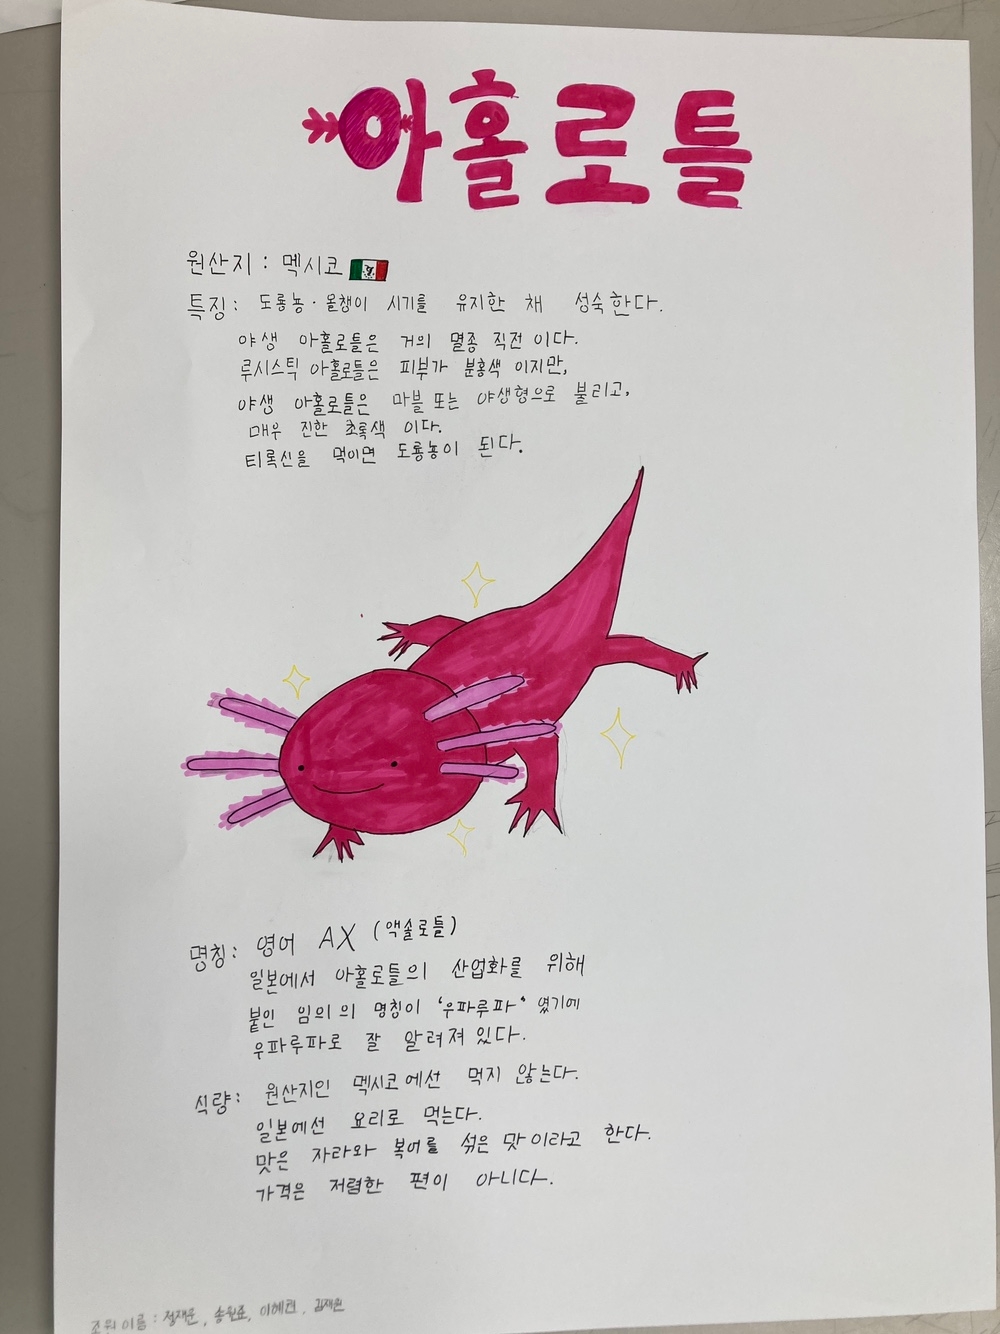 아홀로틀
원산지 : 멕시코
특징 : 도룡뇽 · 올챙이 시기를 유지한 채 성숙한다.
야생 아홀로틀은 거의 멸종 직전 이다.
루시스틱 아홀로틀은 피부가 분홍색 이지만,
야생 아홀로틀은 마블 또는 야생형으로 불리고,
매우 진한 초록색 이다.
티록신을 먹이면 도룡뇽이 된다.
명칭 : 영어 AX (액솔로틀)
일본에서 아홀로틀의 산업화를 위해
붙인 임의의 명칭이 '우파루파' 였기에
우파루파로 잘 알려져 있다.
식량 : 원산지인 멕시코에선 먹지 않는다.
일본에선 요리로 먹는다.
맛은 자라와 복어를 섞은 맛이라고 한다.
가격은 저렴한 편이 아니다.
조원 이름 : 정재운, 송원준, 이혜린, 김재원